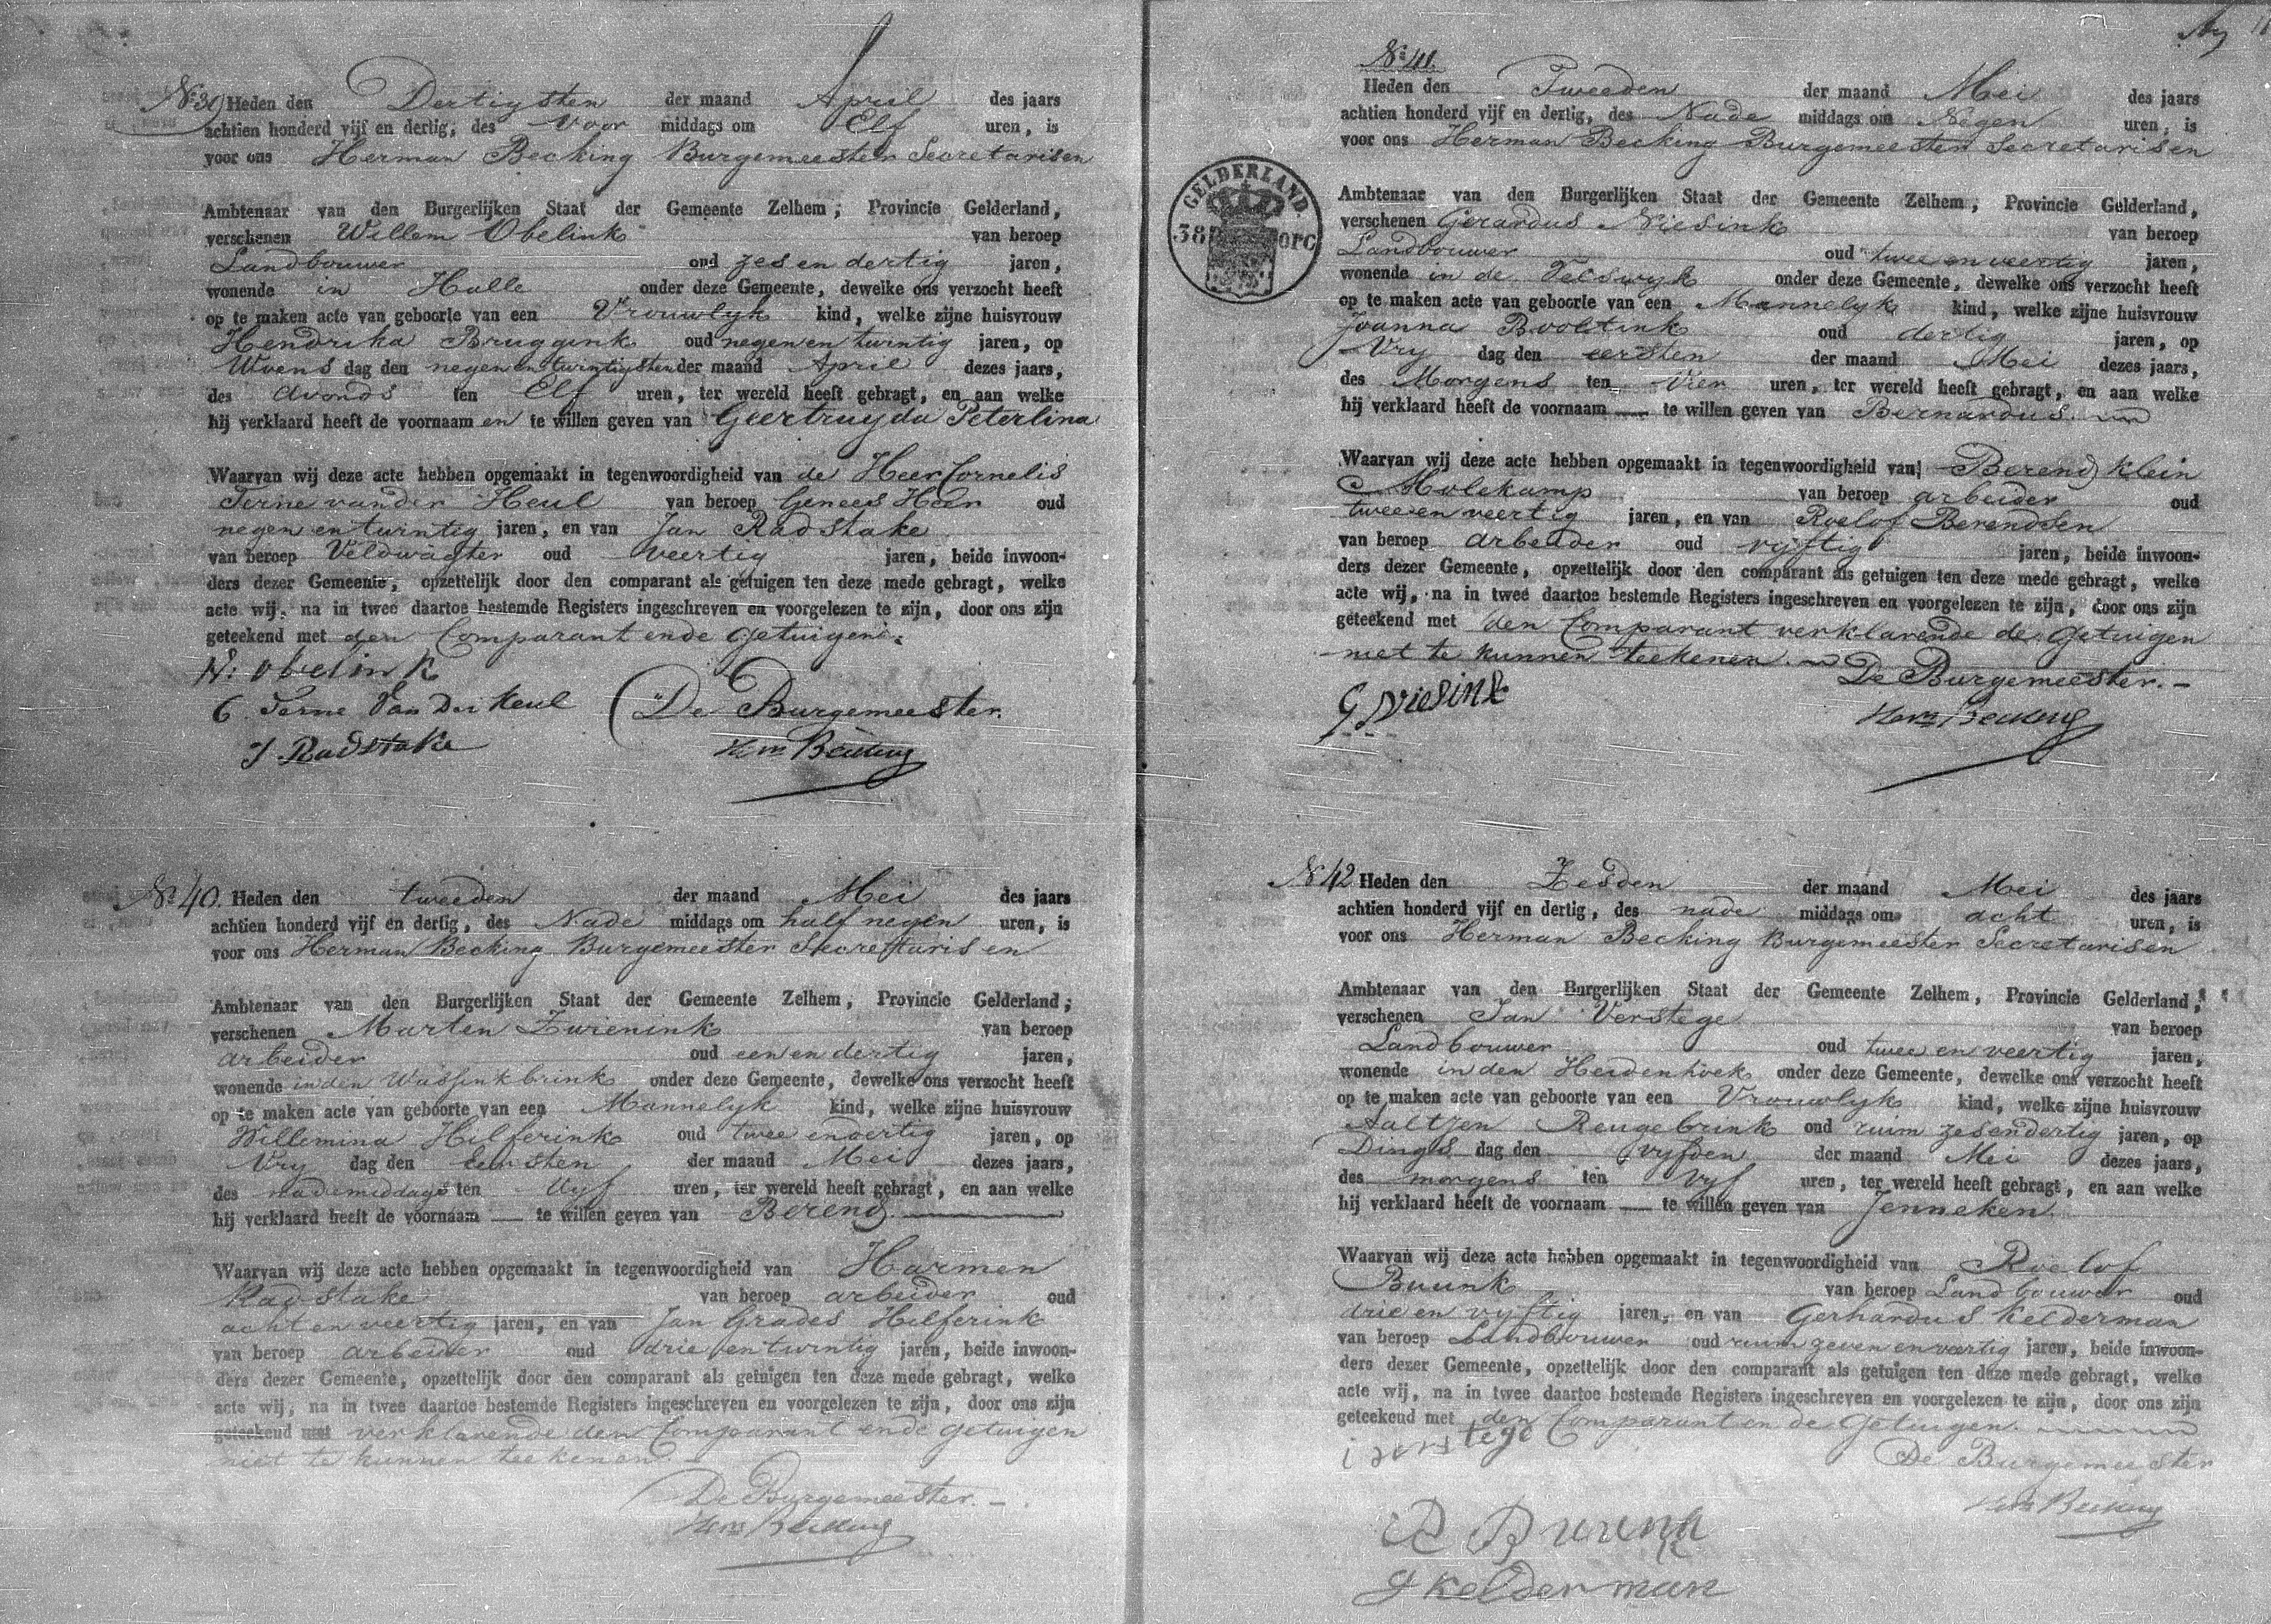 No 39 Heden den Dertigsten der maand April des jaars
achtien honderd vijf en dertig, des Voor middags om Elf uren, is
voor ons Herman Becking Burgemeester Secretaris en
Ambtenaar van den Burgerlijken Staat der Gemeente Zelhem, Provincie Gelderland,
verschenen Willem Obelink van beroep
Landbouwer oud zes en dertig jaren,
wonende in Halle onder deze Gemeente, dewelke ons verzocht heeft
op te maken acte van geboorte van een Vrouwlyk kind, welke zijne huisvrouw
Hendrika Bruggink oud negen en twintig jaren, op
Woens dag den negen en twintigsten der maand April dezes jaars,
des Avonds ten Elf uren, ter wereld heeft gebragt, en aan welke
hij verklaard heeft de voornaam en te willen geven van Geertruyda Peterlina
Waarvan wij deze acte hebben opgemaakt in tegenwoordigheid van de Heer Cornelis
Terne van der Heul van beroep Genees Heer oud
negen en twintig jaren, en van Jan Radstake
van beroep Veldwagter oud veertig jaren, beide inwoon-
ders dezer Gemeente, opzettelijk door den comparant als getuigen ten deze mede gebragt, welke
acte wij, na in twee daartoe bestemde Registers ingeschreven en voorgelezen te zijn, door ons zijn
geteekend met den Comparant en de Getuigen.
W: obelink
C. Terne Van Der Heul De Burgemeester.
J Radstake Herm Becking
No 40. Heden den tweeden der maand Mei des jaars
achtien honderd vijf en dertig, des Nade middags om half negen uren, is
voor ons Herman Becking Burgemeester Secretaris en
Ambtenaar van den Burgerlijken Staat der Gemeente Zelhem, Provincie Gelderland,
verschenen Marten Zwienink van beroep
arbeider oud een en dertig jaren,
wonende in den Wassenkbrink onder deze Gemeente, dewelke ons verzocht heeft
op te maken acte van geboorte van een Mannelyk kind, welke zijne huisvrouw
Willemina Hilferink oud twee en dertig jaren, op
Vry dag den Eersten der maand Mei dezes jaars,
des nademiddags ten Vyf uren, ter wereld heeft gebragt, en aan welke
hij verklaard heeft de voornaam — te willen geven van Berend.
Waarvan wij deze acte hebben opgemaakt in tegenwoordigheid van Harmen
Radstake van beroep arbeider oud
acht en veertig jaren, en van Jan Grades Hilferink
van beroep arbeider oud drie en twintig jaren, beide inwoon-
ders dezer Gemeente, opzettelijk door den comparant als getuigen ten deze mede gebragt, welke
acte wij, na in twee daartoe bestemde Registers ingeschreven en voorgelezen te zijn, door ons zijn
geteekend met verklarende den Comparant en de getuigen
niet te kunnen teekenen
De Burgemeester. –
Herm Becking
No 41.
Heden den Tweeden der maand Mei des jaars
achtien honderd vijf en dertig, des Nade middags om Negen uren, is
voor ons Herman Becking Burgemeester Secretaris en
GELDERLAND.
Ambtenaar van den Burgerlijken Staat der Gemeente Zelhem, Provincie Gelderland,
verschenen Gerardus Niesink van beroep
Landbouwer oud twee en veertig jaren,
wonende in de Velswyk onder deze Gemeente, dewelke ons verzocht heeft
op te maken acte van geboorte van een Mannelyk kind, welke zijne huisvrouw
Joanna Booltink oud dertig jaren, op
Vry dag den eersten der maand Mei dezes jaars,
des Morgens ten Vier uren, ter wereld heeft gebragt, en aan welke
hij verklaard heeft de voornaam — te willen geven van Bernardus.
Waarvan wij deze acte hebben opgemaakt in tegenwoordigheid van Berend Klein
Molekamp van beroep arbeider oud
twee en veertig jaren, en van Roelof Berendsen
van beroep arbeider oud vyftig jaren, beide inwoon-
ders dezer Gemeente, opzettelijk door den comparant als getuigen ten deze mede gebragt, welke
acte wij, na in twee daartoe bestemde Registers ingeschreven en voorgelezen te zijn, door ons zijn
geteekend met den Comparant verklarende de Getuigen
niet te kunnen teekenen. De Burgemeester. –
G Niesink Herm Becking
No 42 Heden den Zesden der maand Mei des jaars
achtien honderd vijf en dertig, des nade middags om acht uren, is
voor ons Herman Becking Burgemeester Secretaris en
Ambtenaar van den Burgerlijken Staat der Gemeente Zelhem, Provincie Gelderland,
verschenen Jan Verstege van beroep
Landbouwer oud twee en veertig jaren,
wonende in den Heidenhoek onder deze Gemeente, dewelke ons verzocht heeft
op te maken acte van geboorte van een Vrouwlyk kind, welke zijne huisvrouw
Aaltjen Reugebrink oud ruim zesendertig jaren, op
Dings dag den vyfden der maand Mei dezes jaars,
des morgens ten Vyf uren, ter wereld heeft gebragt, en aan welke
hij verklaard heeft de voornaam — te willen geven van Jenneken
Waarvan wij deze acte hebben opgemaakt in tegenwoordigheid van Roelof
Buunk van beroep Landbouwer oud
drie en vyftig jaren, en van Gerhardus Kelderman
van beroep Landbouwer oud ruim zeven en veertig jaren, beide inwoon-
ders dezer Gemeente, opzettelijk door den comparant als getuigen ten deze mede gebragt, welke
acte wij, na in twee daartoe bestemde Registers ingeschreven en voorgelezen te zijn, door ons zijn
geteekend met den Comparant en de Getuigen.
De Burgemeester
Herm Becking
R Buunk
G Kelderman